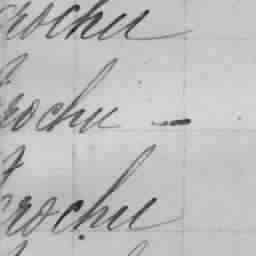 rochu
rochu —
rochu